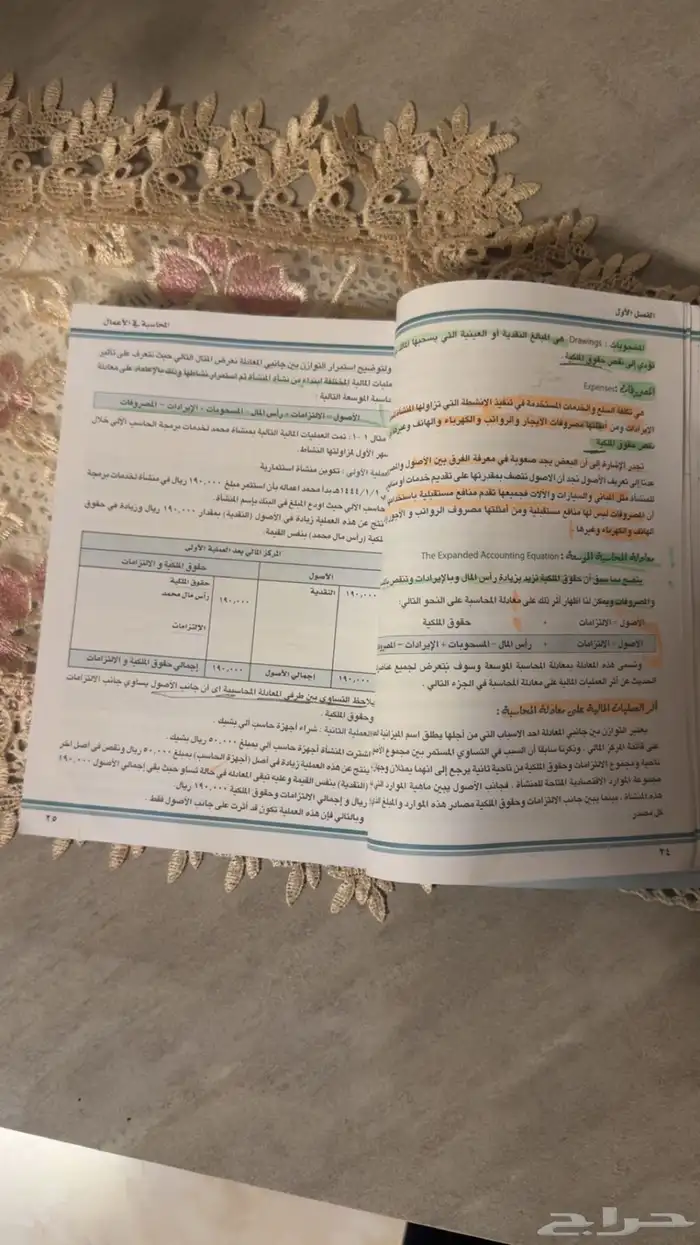 الفصل الأول
المسحوبات : Drawings هي المبالغ النقدية أو العينية التي يسحبها
تؤدي إلى نقص حقوق الملكية .
المصروفات Expenses
هي تكلفة السلع والخدمات المستخدمة في تنفيذ الأنشطة التي تزاولها المنشأة
الإيرادات ومن أمثلتها مصروفات الايجار والرواتب والكهرباء والهاتف وغيرها
نقص حقوق الملكية
تجدر الإشارة إلى أن البعض يجد صعوبة في معرفة الفرق بين الأصول
عدنا إلى تعريف الأصول نجد أن الاصول تتصف بمقدرتها على تقديم خدمات أو منافع
للمنشأة مثل المباني والسيارات والآلات فجميعها تقدم منافع مستقبلية
أن المصروفات ليس لها منافع مستقبلية ومن أمثلتها مصروف الرواتب و الأجور
الهاتف والكهرباء وغيرها
معادلة المحاسبة الموسعة : The Expanded Accounting Equation
يتضح مما سبق أن حقوق الملكية تزيد بزيادة رأس المال وبالإيرادات وتنقص
والمصروفات ويمكن لنا اظهار أثر ذلك على معادلة المحاسبة على النحو التالي:
الاصول = الالتزامات + حقوق الملكية
الاصول = الالتزامات + رأس المال - المسحوبات + الإيرادات - المصروفات
وتسمى هذه المعادلة بمعادلة المحاسبة الموسعة وسوف نتعرض لجميع
الحديث عن أثر العمليات المالية على معادلة المحاسبة في الجزء التالي .
أثر العمليات المالية على معادلة المحاسبة :
يعتبر التوازن بين جانبي المعادلة احد الاسباب التي من أجلها يطلق اسم الميزانية
على قائمة المركز المالي . وذكرنا سابقا أن السبب في التساوي المستمر بين مجموع
ناحية ومجموع الالتزامات وحقوق الملكية من ناحية ثانية يرجع إلى انهما يمثلان
مجموعة الموارد الاقتصادية المتاحة للمنشأة . فجانب الأصول يبين ماهية الموارد
هذه المنشأة ، بينما يبين جانب الالتزامات وحقوق الملكية مصادر هذه الموارد والمبلغ
كل مصدر
٢٤
المحاسبة في الأعمال
ولتوضيح استمرار التوازن بين جانبي المعادلة نعرض المثال التالي حيث نتعرف على تأثير
عمليات المالية المختلفة ابتداء من نشأة المنشأة ثم استمرار نشاطها وذلك بالاعتماد على معادلة
المحاسبة الموسعة التالية :
الأصول = الالتزامات + رأس المال - المسحوبات + الإيرادات - المصروفات
مثال ١-١ : تمت العمليات المالية التالية بمنشأة محمد لخدمات برمجة الحاسب الآلي خلال
شهر الأول لمزاولتها النشاط.
العملية الأولى : تكوين منشأة استثمارية
١٤٤٤/١/١هـ بدأ محمد اعماله بأن استثمر مبلغ ١٩٠,٠٠٠ ريال في منشأة لخدمات برمجة
حاسب الآلي حيث اودع المبلغ في البنك بإسم المنشأة.
نتج عن هذه العملية زيادة في الأصول (النقدية) بمقدار ١٩٠,٠٠٠ ريال وزيادة في حقوق
ملكية (رأس مال محمد) بنفس القيمة.
المركز المالي بعد العملية الأولى
الأصول حقوق الملكية و الالتزامات
١٩٠,٠٠٠ النقدية ١٩٠,٠٠٠ حقوق الملكية
رأس مال محمد
الالتزامات
١٩٠,٠٠٠ إجمالي الأصول ١٩٠,٠٠٠ إجمالي حقوق الملكية و الالتزامات
يلاحظ التساوي بين طرفي المعادلة المحاسبية أي أن جانب الأصول يساوي جانب الالتزامات
وحقوق الملكية .
العملية الثانية : شراء أجهزة حاسب آلي بشيك .
اشترت المنشأة أجهزة حاسب آلي بمبلغ ٥٠,٠٠٠ ريال بشيك .
ينتج عن هذه العملية زيادة في أصل (أجهزة الحاسب) بمبلغ ٥٠,٠٠٠ ريال ونقص في أصل آخر
(النقدية) بنفس القيمة وعليه تبقى المعادلة في حالة تساو حيث بقي إجمالي الأصول ١٩٠,٠٠٠
ريال و إجمالي الالتزامات وحقوق الملكية ١٩٠,٠٠٠ ريال
وبالتالي فإن هذه العملية تكون قد أثرت على جانب الأصول فقط .
٢٥
حراج